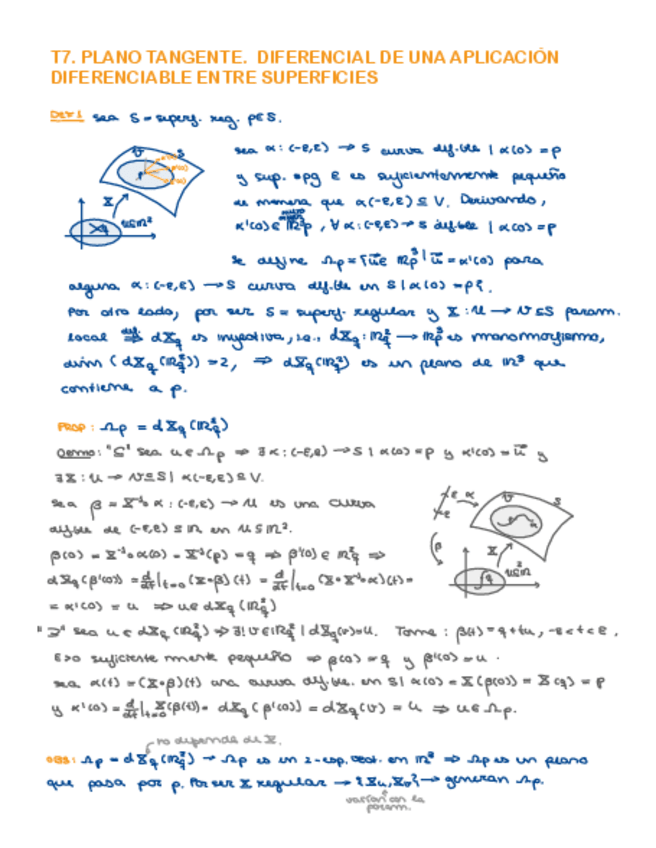 T7. PLANO TANGENTE. DIFERENCIAL DE UNA APLICACIÓN
DIFERENCIABLE ENTRE SUPERFICIES
DEF 1 sea S = superf. reg. p∈S.
sea α: (-ε,ε) → S curva dif.ble | α(0) = p
y sup. opg ε es suficientemente pequeño
de manera que α(-ε,ε) ⊆ V. Derivando,
α'(0) ∈ ℝ³p, ∀ α: (-ε,ε) → S dif.ble | α(0) = p
Se define Ωp = {u⃗ ∈ ℝ³p | u⃗ = α'(0) para
alguna α: (-ε,ε) → S curva dif.ble en S | α(0) = p}.
Por otro lado, por ser S = superf. regular y X: U → V ⊆ S param.
local ⇒ dXq es inyectiva, i.e., dXq: ℝ²q → ℝ³p es monomorfismo,
dim (dXq(ℝ²q)) = 2, ⇒ dXq(ℝ²q) es un plano de ℝ³ que
contiene a p.
PROP: Ωp = dXq(ℝ²q)
Demo: "⊆" sea u ∈ Ωp ⇒ ∃ α: (-ε,ε) → S | α(0) = p y α'(0) = u⃗ y
∃ X: U → V ⊆ S | α(-ε,ε) ⊆ V.
sea β = X⁻¹∘α: (-ε,ε) → U es una curva
dif.ble de (-ε,ε) ⊆ ℝ en U ⊆ ℝ².
β(0) = X⁻¹∘α(0) = X⁻¹(p) = q ⇒ β'(0) ∈ ℝ²q ⇒
dXq(β'(0)) = d/dt|t=0 (X∘β)(t) = d/dt|t=0 (X∘X⁻¹∘α)(t) =
= α'(0) = u ⇒ u ∈ dXq(ℝ²q)
"⊇" sea u ∈ dXq(ℝ²q) ⇒ ∃! v ∈ ℝ²q | dXq(v) = u. Tome: β(t) = q + tu, -ε < t < ε,
ε>0 suficientemente pequeño ⇒ β(0) = q y β'(0) = u.
sea α(t) = (X∘β)(t) una curva dif.ble. en S | α(0) = X(β(0)) = X(q) = p
y α'(0) = d/dt|t=0 X(β(t)) = dXq(β'(0)) = dXq(v) = u ⇒ u ∈ Ωp.
no depende de X.
OBS: Ωp = dXq(ℝ²q) → Ωp es un 2-esp. vect. en ℝ³ ⇒ Ωp es un plano
que pasa por p. Por ser X regular → {Xu, Xv} → generan Ωp.
varían con la
param.